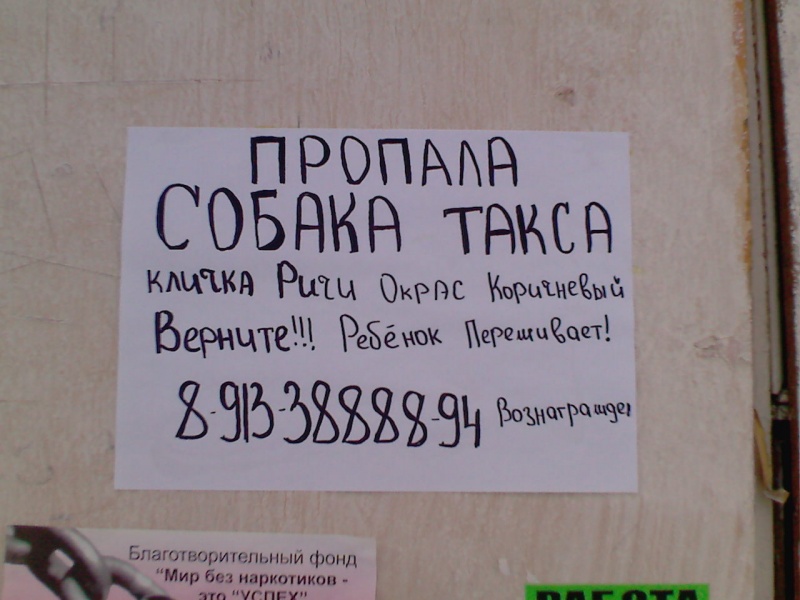 ПРОПАЛА
СОБАКА ТАКСА
КЛИЧКА РИЧИ ОКРАС КОРИЧНЕВЫЙ
Верните!!! Ребёнок Переживает!
8-913-38888-94 Вознагражде
Благотворительный фонд
"Мир без наркотиков -
это "УСПЕХ"
РАБОТА